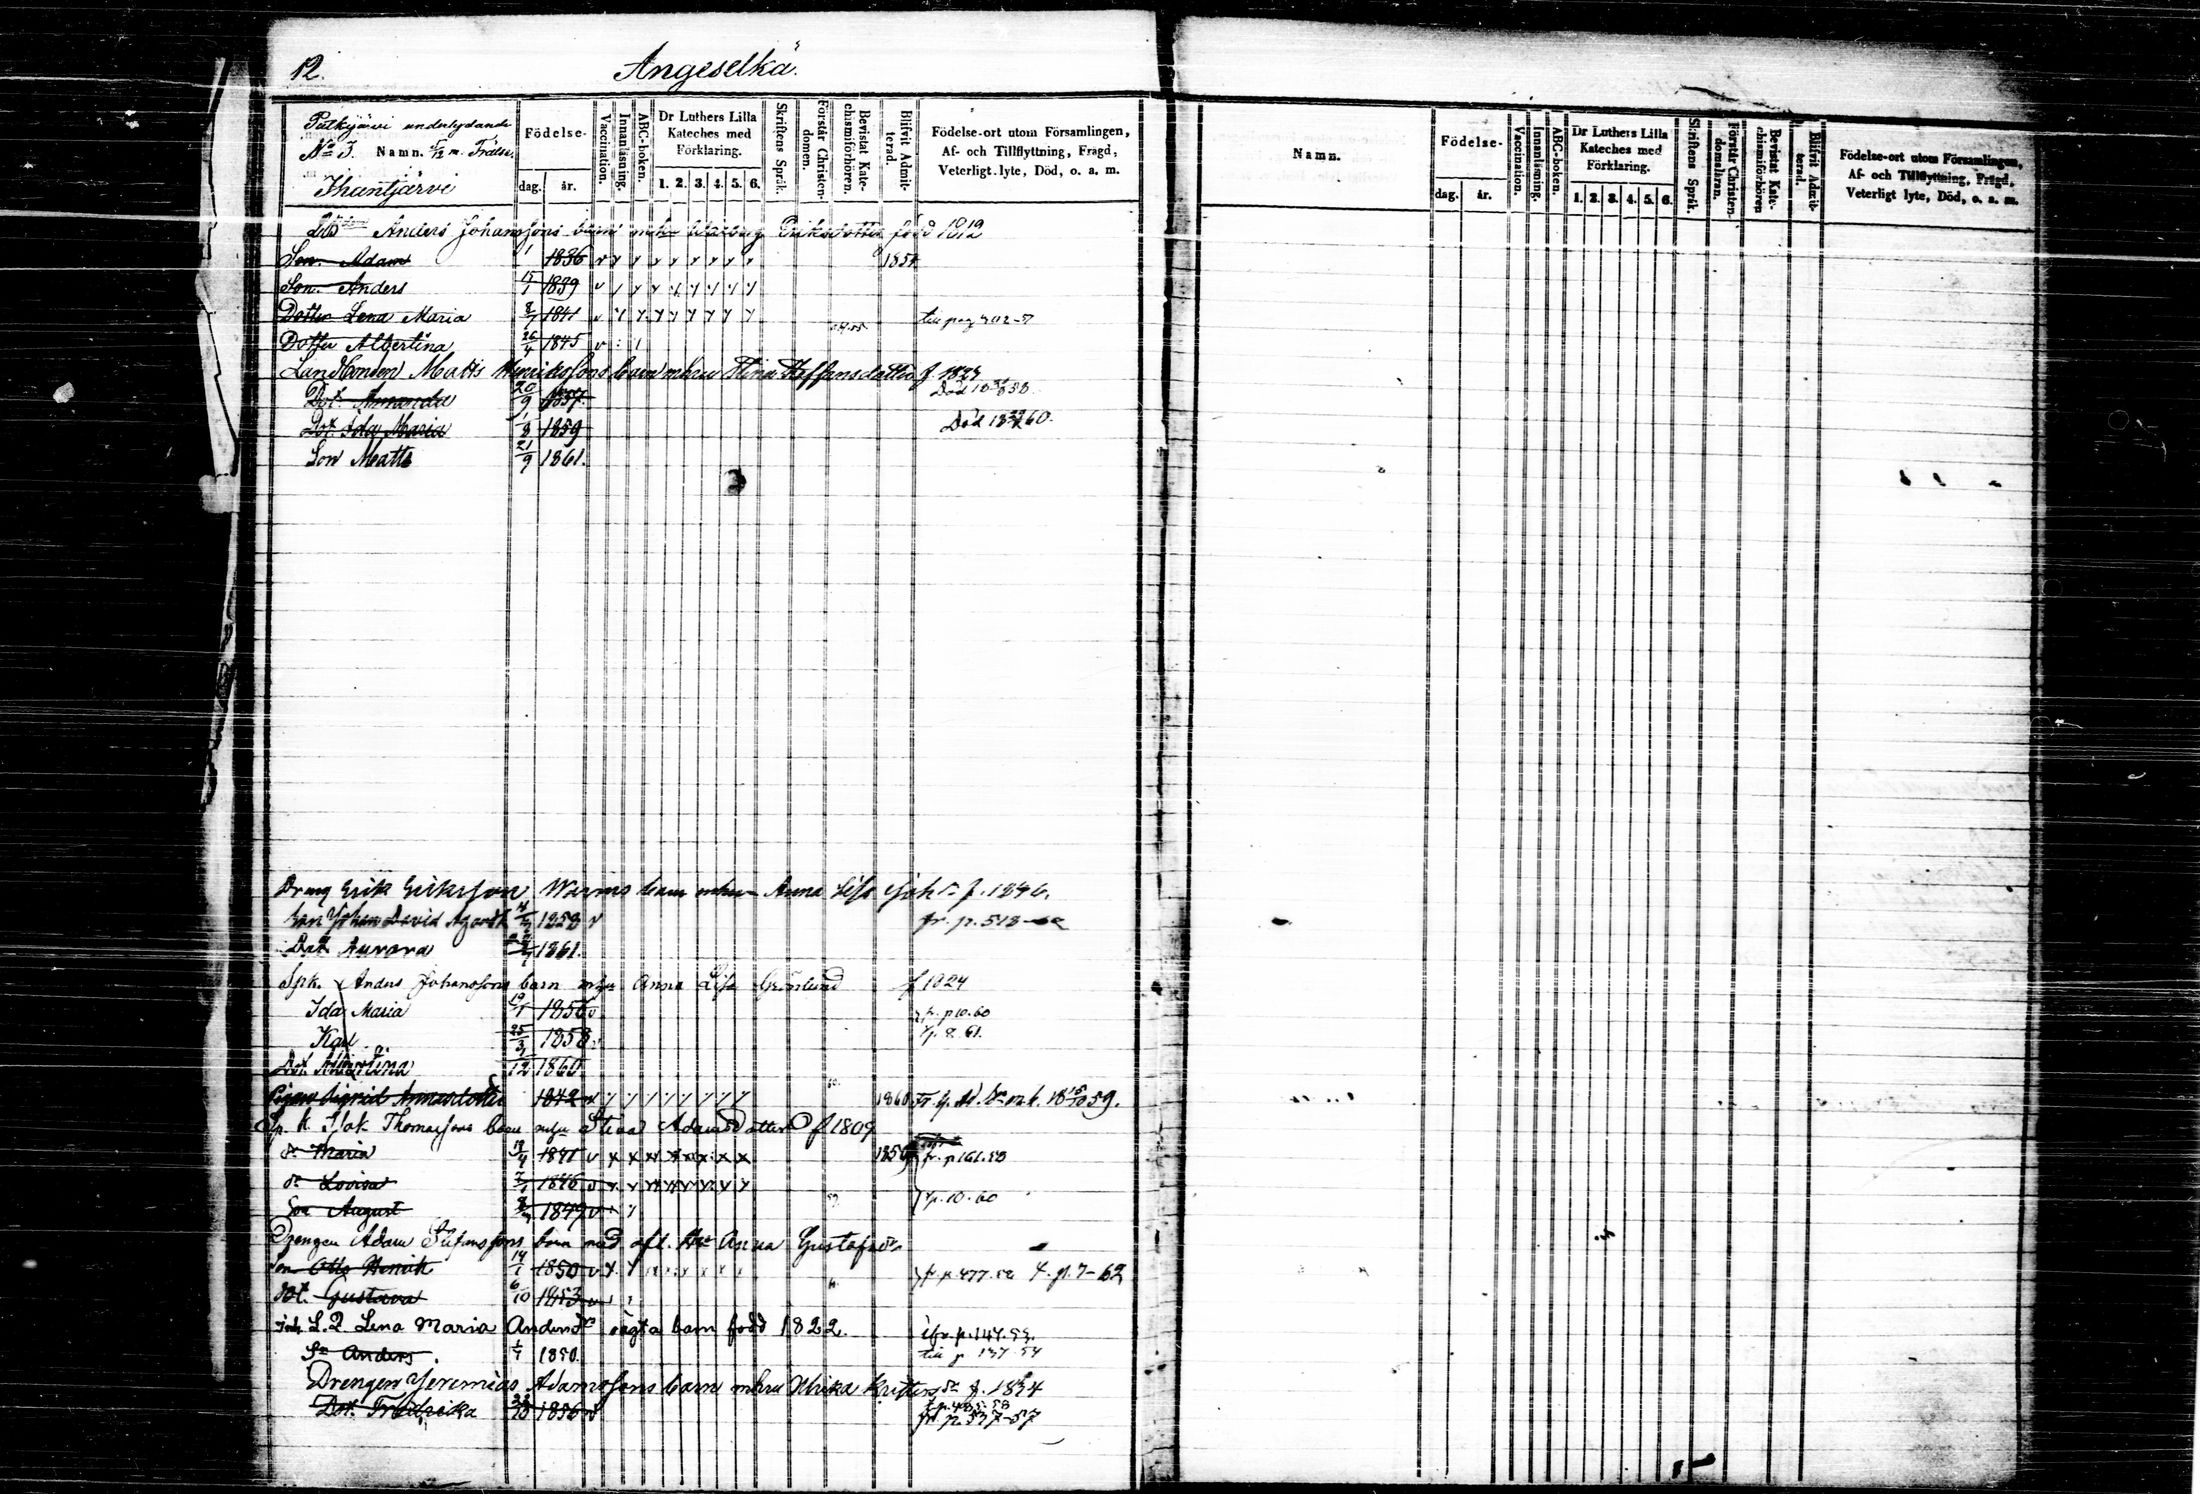 12. Angeselkä.
Putkijärvi underlydande
No 3. Namn. 5/12 m. Frälse.
Ihantjärvi
Födelse-
dag. år.
Vaccination.
Innanläsning.
ABC-boken.
Dr Luthers Lilla Kateches med Förklaring.
1. 2. 3. 4. 5. 6.
Skriftens Språk.
Förstår Christendomen.
Bevistat Katechismiförhören.
Blifvit Admitterad.
Födelse-ort utom Församlingen, Af- och Tillflyttning, Frägd, Veterligt lyte, Död, o. a. m.
Anders Johanssons barn mhu Walborg Eriksdotter född 1812
Son Adam 1 1836 1854
Son Anders 15/1 1839
Dotter Lena Maria 8/7 1841 till pag 402-57
Dotter Albertina 26/4 1845
Landbonden Matts Henrikssons barn mhu Stina Steffansdotter f 1823
Dot. Amanda 20/9 1857. Död
Dot. Ida Maria 1/3 1859 Död 60.
Son Matts 21/9 1861.
Dreng Erik Eriksson Warms barn mhu Anna Lisa Joh dr f. 1846.
Son Johan David 1858 v fr. p. 518-
Dot. Aurora 1861.
Spk. Anders Johanssons barn mhu Anna Lisa Grönlund f 1824
Ida Maria 19/1 1856 v fr. p 10. 60
Karl 25/3 1858 v t p. 8. 61.
Dot. Albertina 1/12 1860
Pigan Sigrid Annasdotter 1842 v 1860 59.
Sp. K. Isak Thomassons barn mhu Stina Adamsdotter f 1809
dr Maria 18/4 1841 v x x x x x x x x 1859 fr. p 161. 58
dr Lovisa 7/1 1846 v
Son August 8/7 1849 v t p. 10. 60
Drengen Adam Stefanssons barn med afl. Hu Anna Gustafsdr
Son Otto Henrik 14/1 1850 v fr. p. 477. 58 t. p. 7-62
Dot. Gustava 6/10 1853 v
inh. L. Q. Lena Maria Andersdr oägta barn född 1822. ifr. p. 147. 53.
Sn Anders. 1/7 1850. till p 137 54
Drengen Jeremias Adamssons barn mhu Ulrika Kristersdr f. 1834
Dot. Fredrika 1856 v t. p. 485. 58
fr. p. 537-57
Namn.
Födelse-
dag. år.
Vaccination.
Innanläsning.
ABC-boken.
Dr Luthers Lilla Kateches med Förklaring.
1. 2. 3. 4. 5. 6.
Skriftens Språk.
Förstår Christendomsläran.
Bevistat Katechismiförhören
Blifvit Admitterad.
Födelse-ort utom Församlingen, Af- och Tillflyttning, Frägd, Veterligt lyte, Död, o. a. m.